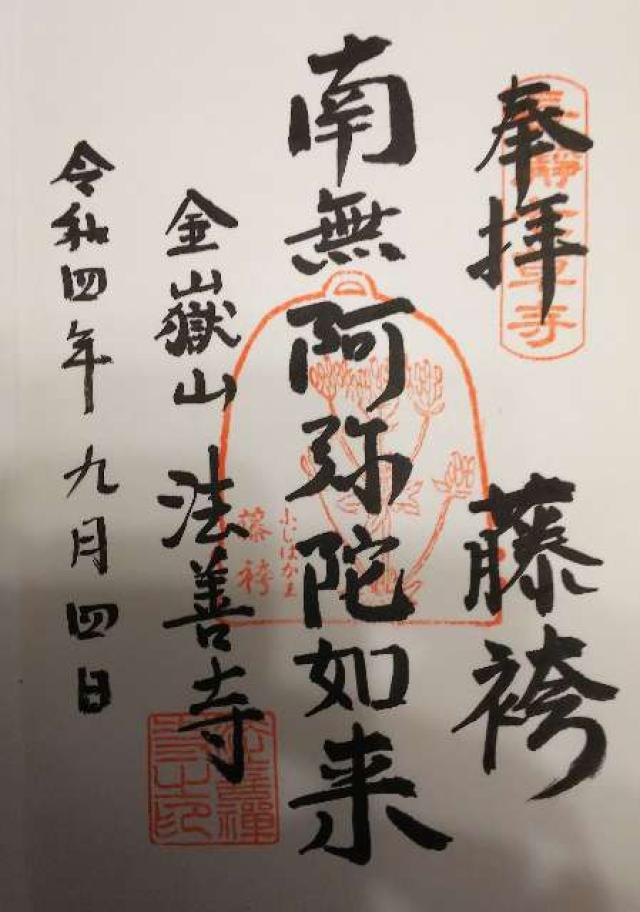 奉拝
藤袴
南無阿弥陀如来
金嶽山 法善寺
令和四年 九月四日
ふじばかま
藤袴